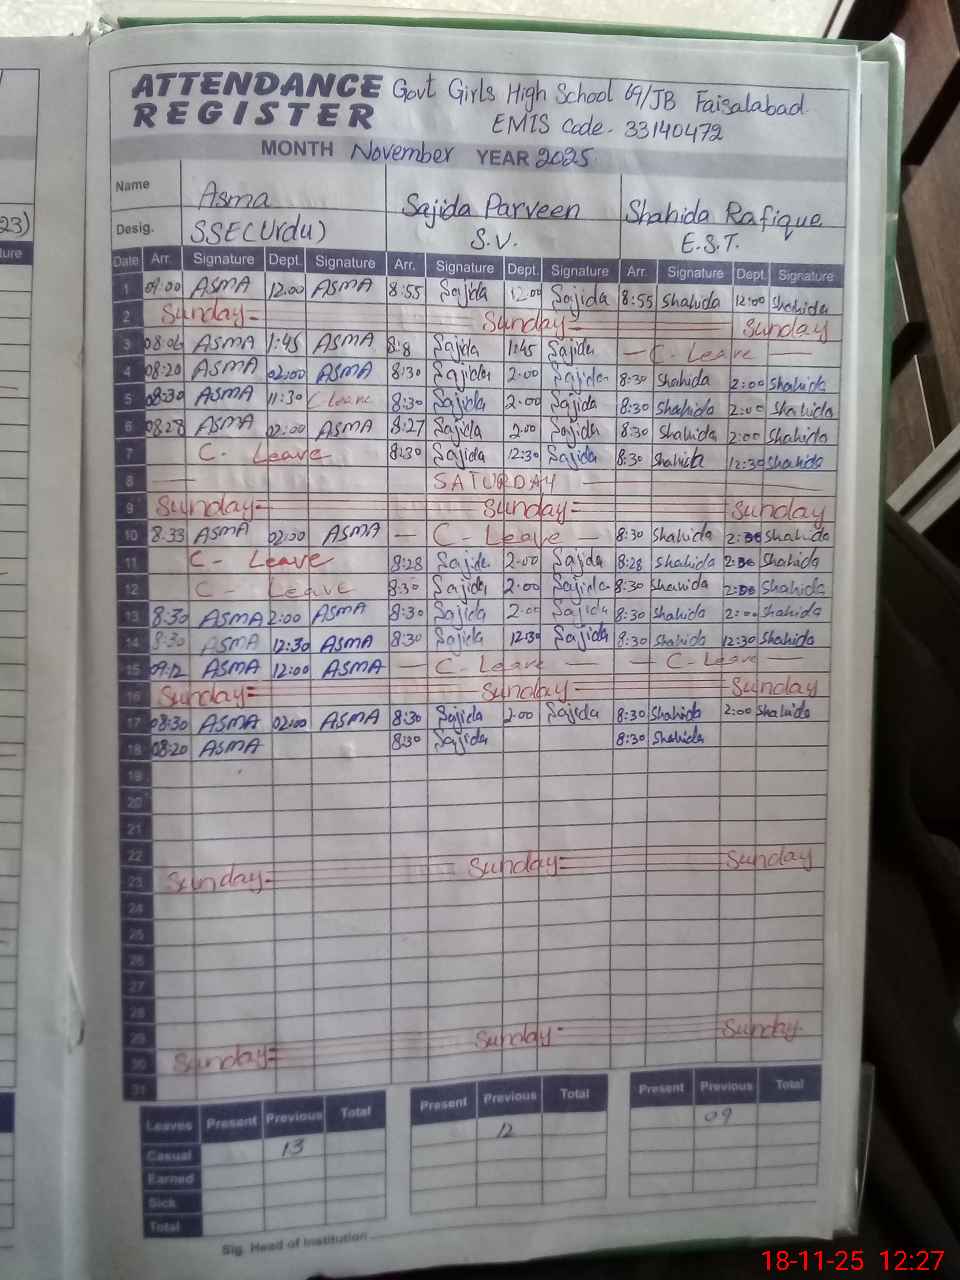 23)
ture
ATTENDANCE Govt Girls High School 69/JB Faisalabad.
REGISTER EMIS Code. 33140472
MONTH November YEAR 2025
Name Asma Sajida Parveen Shahida Rafique
Desig. SSE(Urdu) S.V. E.S.T.
Date Arr. Signature Dept. Signature Arr. Signature Dept. Signature Arr. Signature Dept. Signature
1 09:00 ASMA 12:00 ASMA 8:55 Sajida 12:00 Sajida 8:55 Shahida 12:00 Shahida
2 Sunday Sunday Sunday
3 08:06 ASMA 1:45 ASMA 8:8 Sajida 1:45 Sajida C-Leave
4 08:20 ASMA 02:00 ASMA 8:30 Sajida 2:00 Sajida 8:30 Shahida 2:00 Shahida
5 08:30 ASMA 11:30 C leave 8:30 Sajida 2:00 Sajida 8:30 Shahida 2:00 Shahida
6 08:28 ASMA 02:00 ASMA 8:27 Sajida 2:00 Sajida 8:30 Shahida 2:00 Shahida
7 C- Leave 8:30 Sajida 12:30 Sajida 8:30 Shahida 12:30 Shahida
8 SATURDAY
9 Sunday Sunday Sunday
10 8:33 ASMA 02:00 ASMA C- Leave 8:30 Shahida 2:00 Shahida
11 C- Leave 8:28 Sajida 2:00 Sajida 8:28 Shahida 2:00 Shahida
12 C- Leave 8:30 Sajida 2:00 Sajida 8:30 Shahida 2:00 Shahida
13 8:30 ASMA 2:00 ASMA 8:30 Sajida 2:00 Sajida 8:30 Shahida 2:00 Shahida
14 8:30 ASMA 12:30 ASMA 8:30 Sajida 12:30 Sajida 8:30 Shahida 12:30 Shahida
15 09:12 ASMA 12:00 ASMA C-Leave C-Leave
16 Sunday Sunday Sunday
17 08:30 ASMA 02:00 ASMA 8:30 Sajida 2:00 Sajida 8:30 Shahida 2:00 Shahida
18 08:20 ASMA 8:30 Sajida 8:30 Shahida
19
20
21
22
23 Sunday Sunday Sunday
24
25
26
27
28
29
30 Sunday Sunday Sunday
31
Leaves Present Previous Total Present Previous Total Present Previous Total
Casual 13 12 09
Earned
Sick
Total
Sig. Head of Institution
18-11-25 12:27